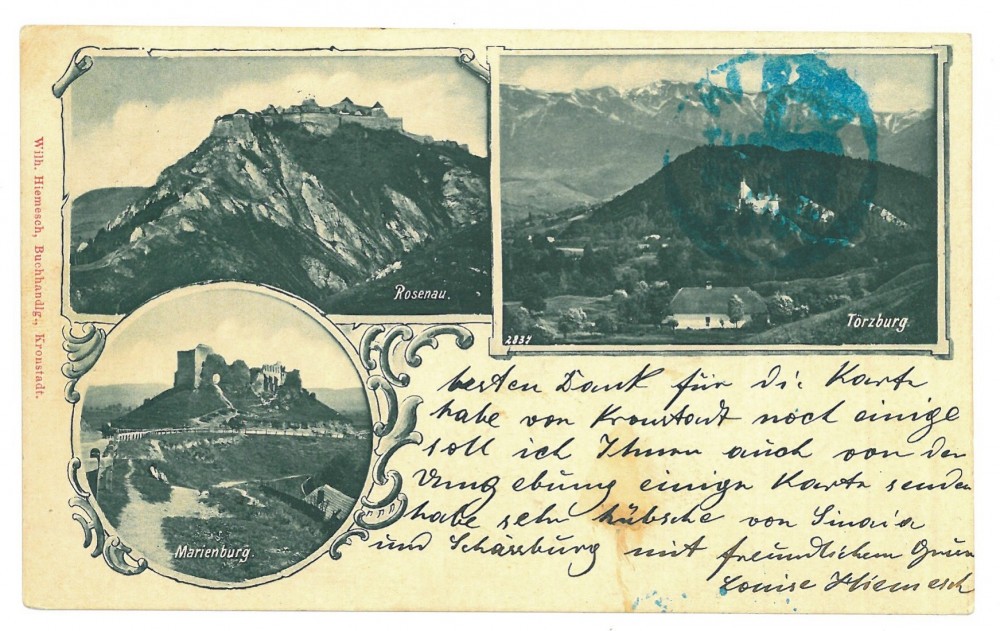 Wilh. Hiemesch, Buchhandlg., Kronstadt.
Rosenau.
2837
Törzburg.
Marienburg.
besten Dank für die Karte
habe von Kronstadt noch einige
soll ich Ihnen auch von der
Umgebung einige Karte senden
habe sehr hübsche von Sinaia
und Schässburg mit freundlichem Gruss
Louise Hiemesch